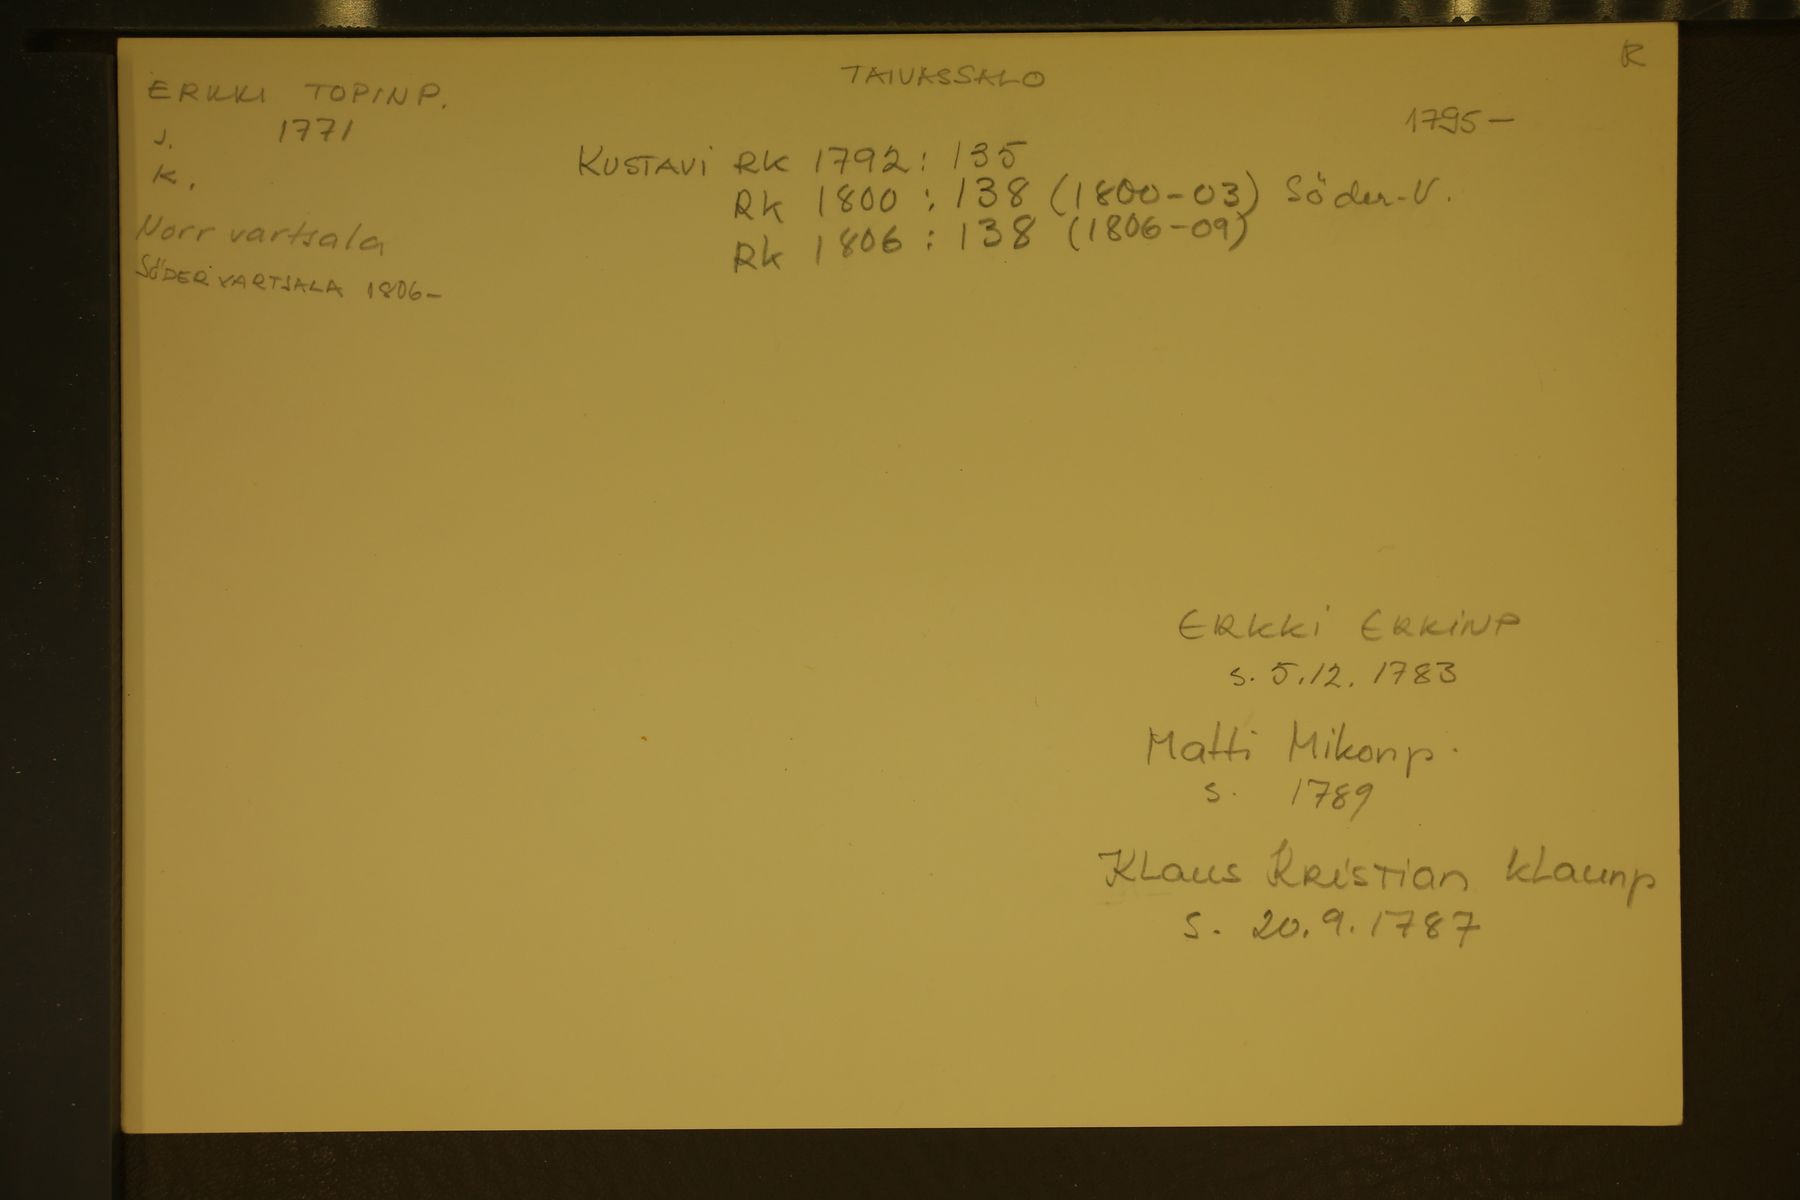 R
TAIVASSALO
ERKKI TOPINP.
1795—
s. 1771
k.
KUSTAVI RK 1792: 135
RK 1800: 138 (1800-03) Söder-V.
RK 1806: 138 (1806-09)
Norr vartsala
SÖDER VARTSALA 1806-
ERKKI ERKINP
s. 5.12. 1783
Matti Mikonp.
s. 1789
KLaus KRISTian kLaunp
s. 20.9.1787